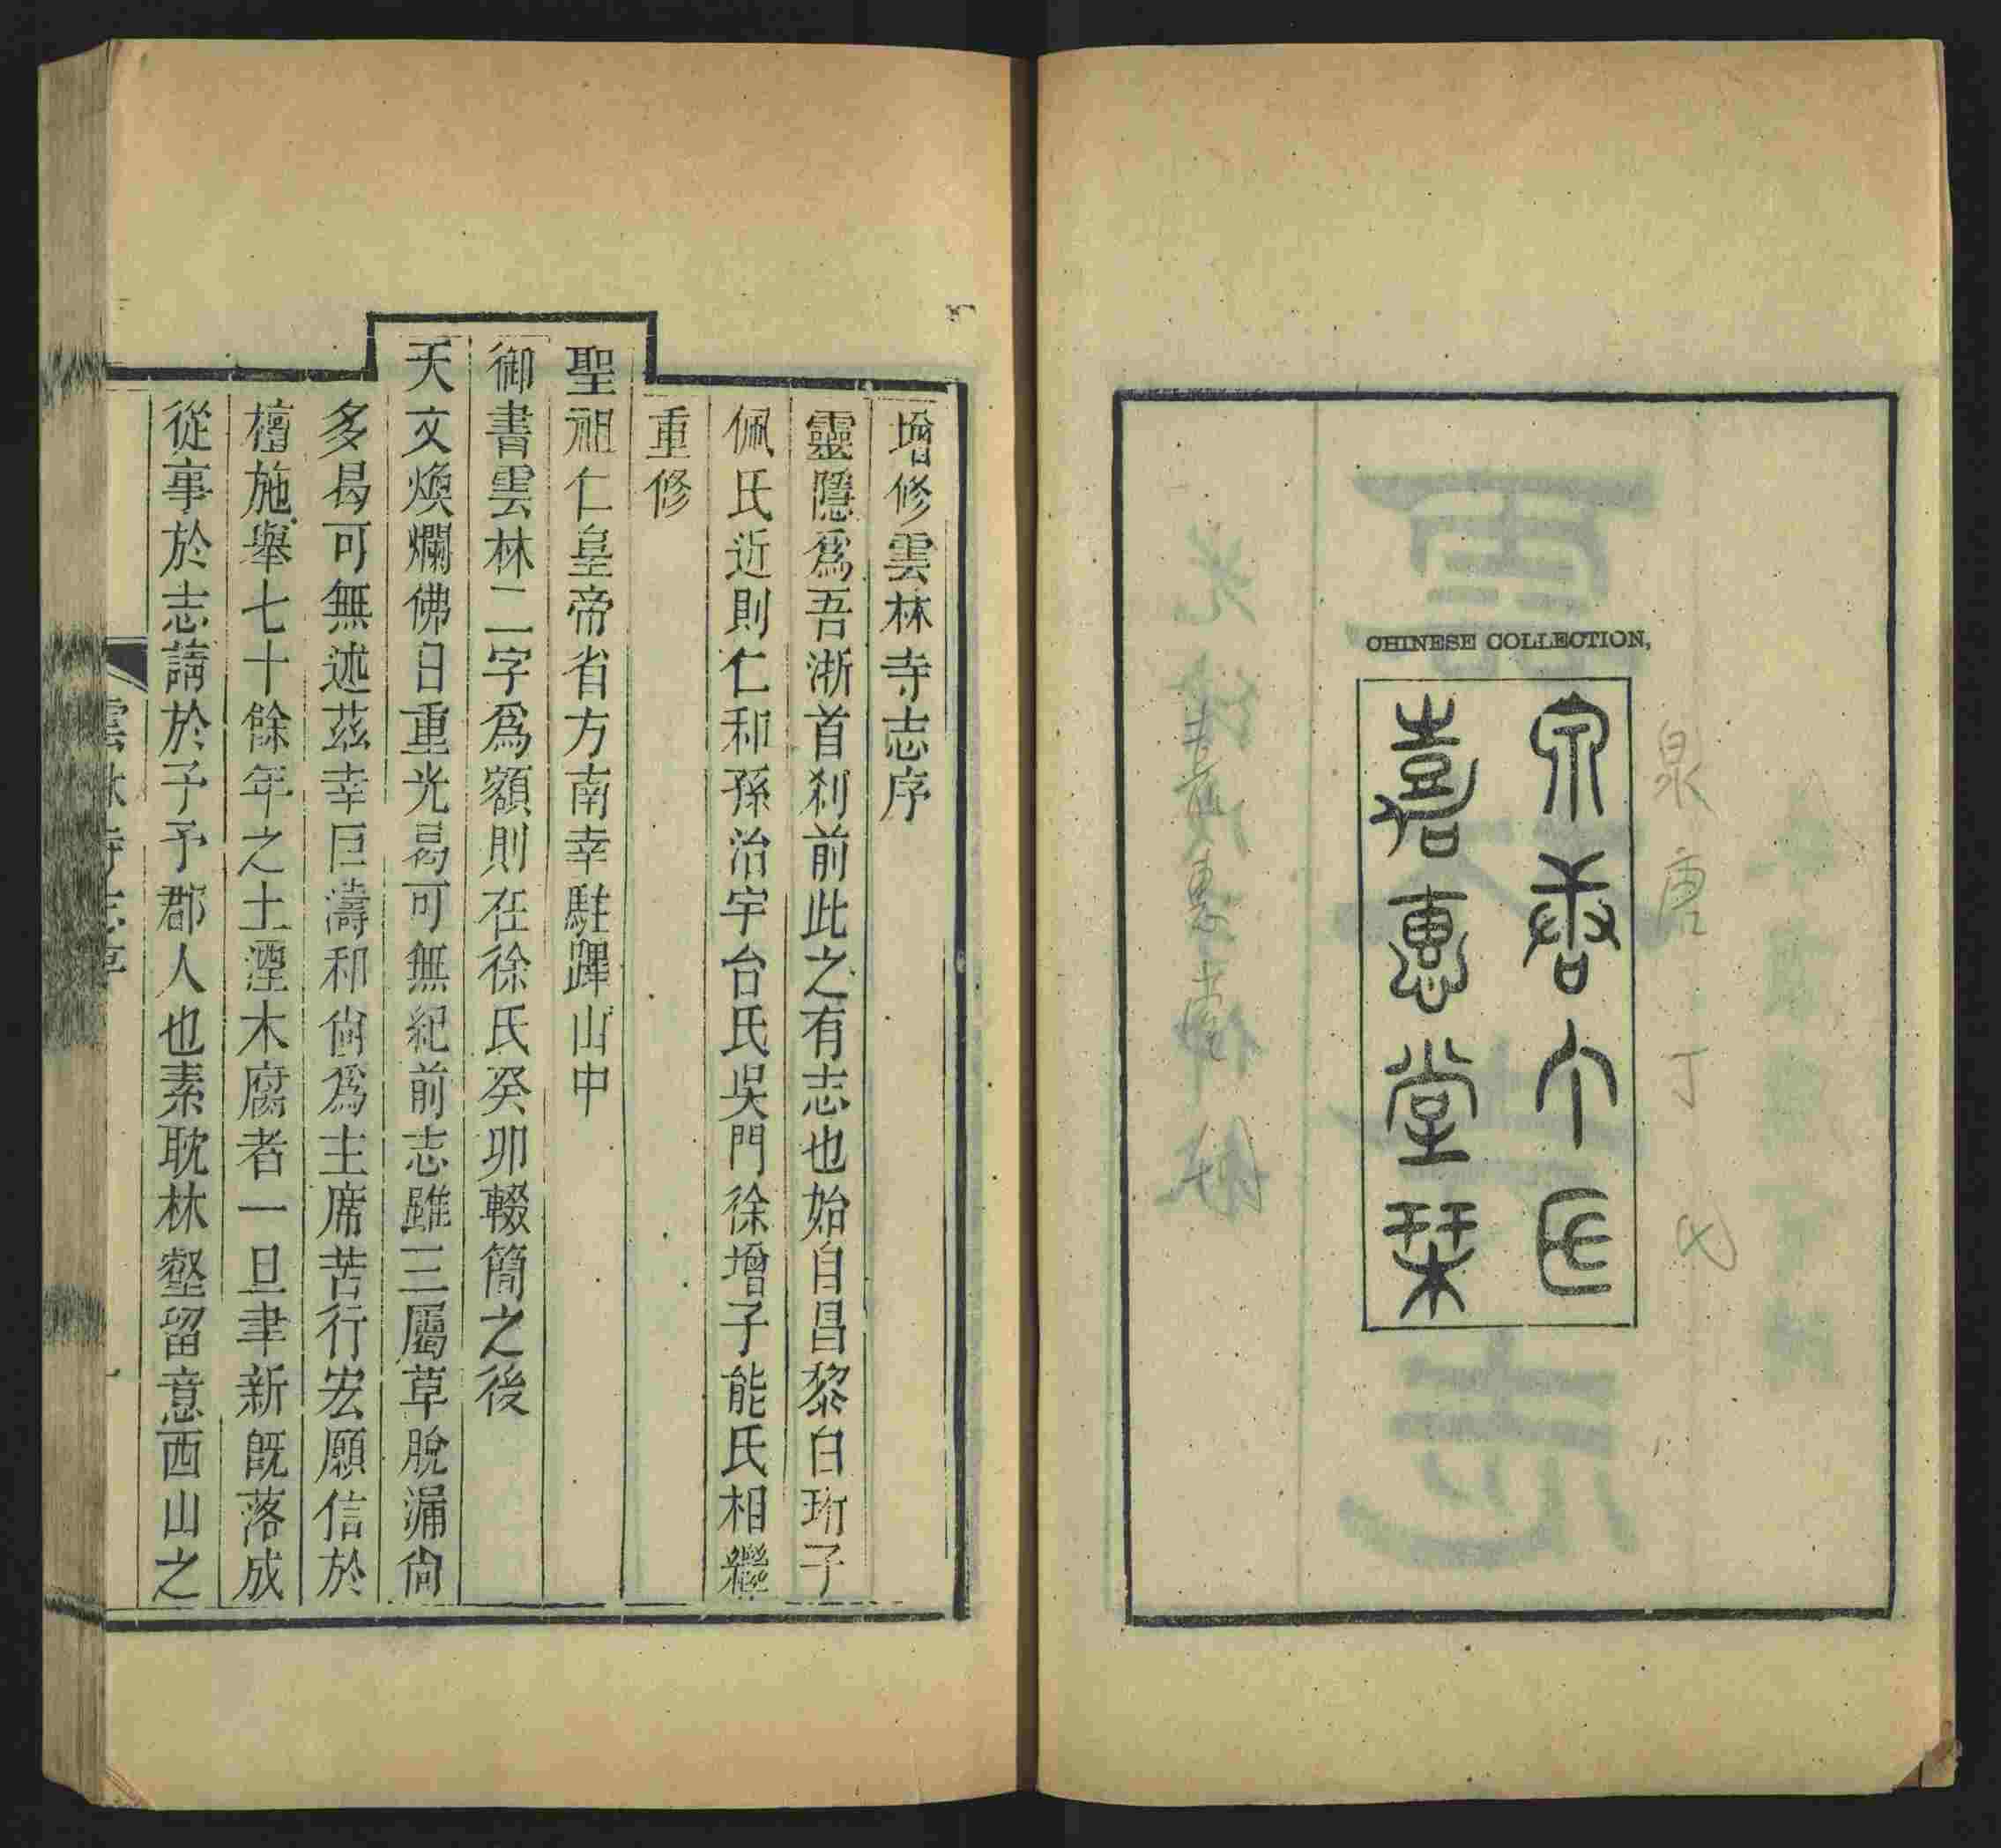 CHINESE COLLECTION,
泉唐丁氏
嘉惠堂栞
泉唐丁氏
增修雲林寺志序
靈隱爲吾浙首刹前此之有志也始自昌黎白珩子
佩氏近則仁和孫治宇台氏吳門徐增子能氏相繼
重修
聖祖仁皇帝省方南幸駐蹕山中
御書雲林二字爲額則在徐氏癸卯輟簡之後
天文煥爛佛日重光曷可無紀前志雖三屬草脫漏尙
多曷可無述茲幸巨濤和尙爲主席苦行宏願信於
檀施舉七十餘年之土湮木腐者一旦聿新旣落成
從事於志請於予予郡人也素耽林壑留意西山之